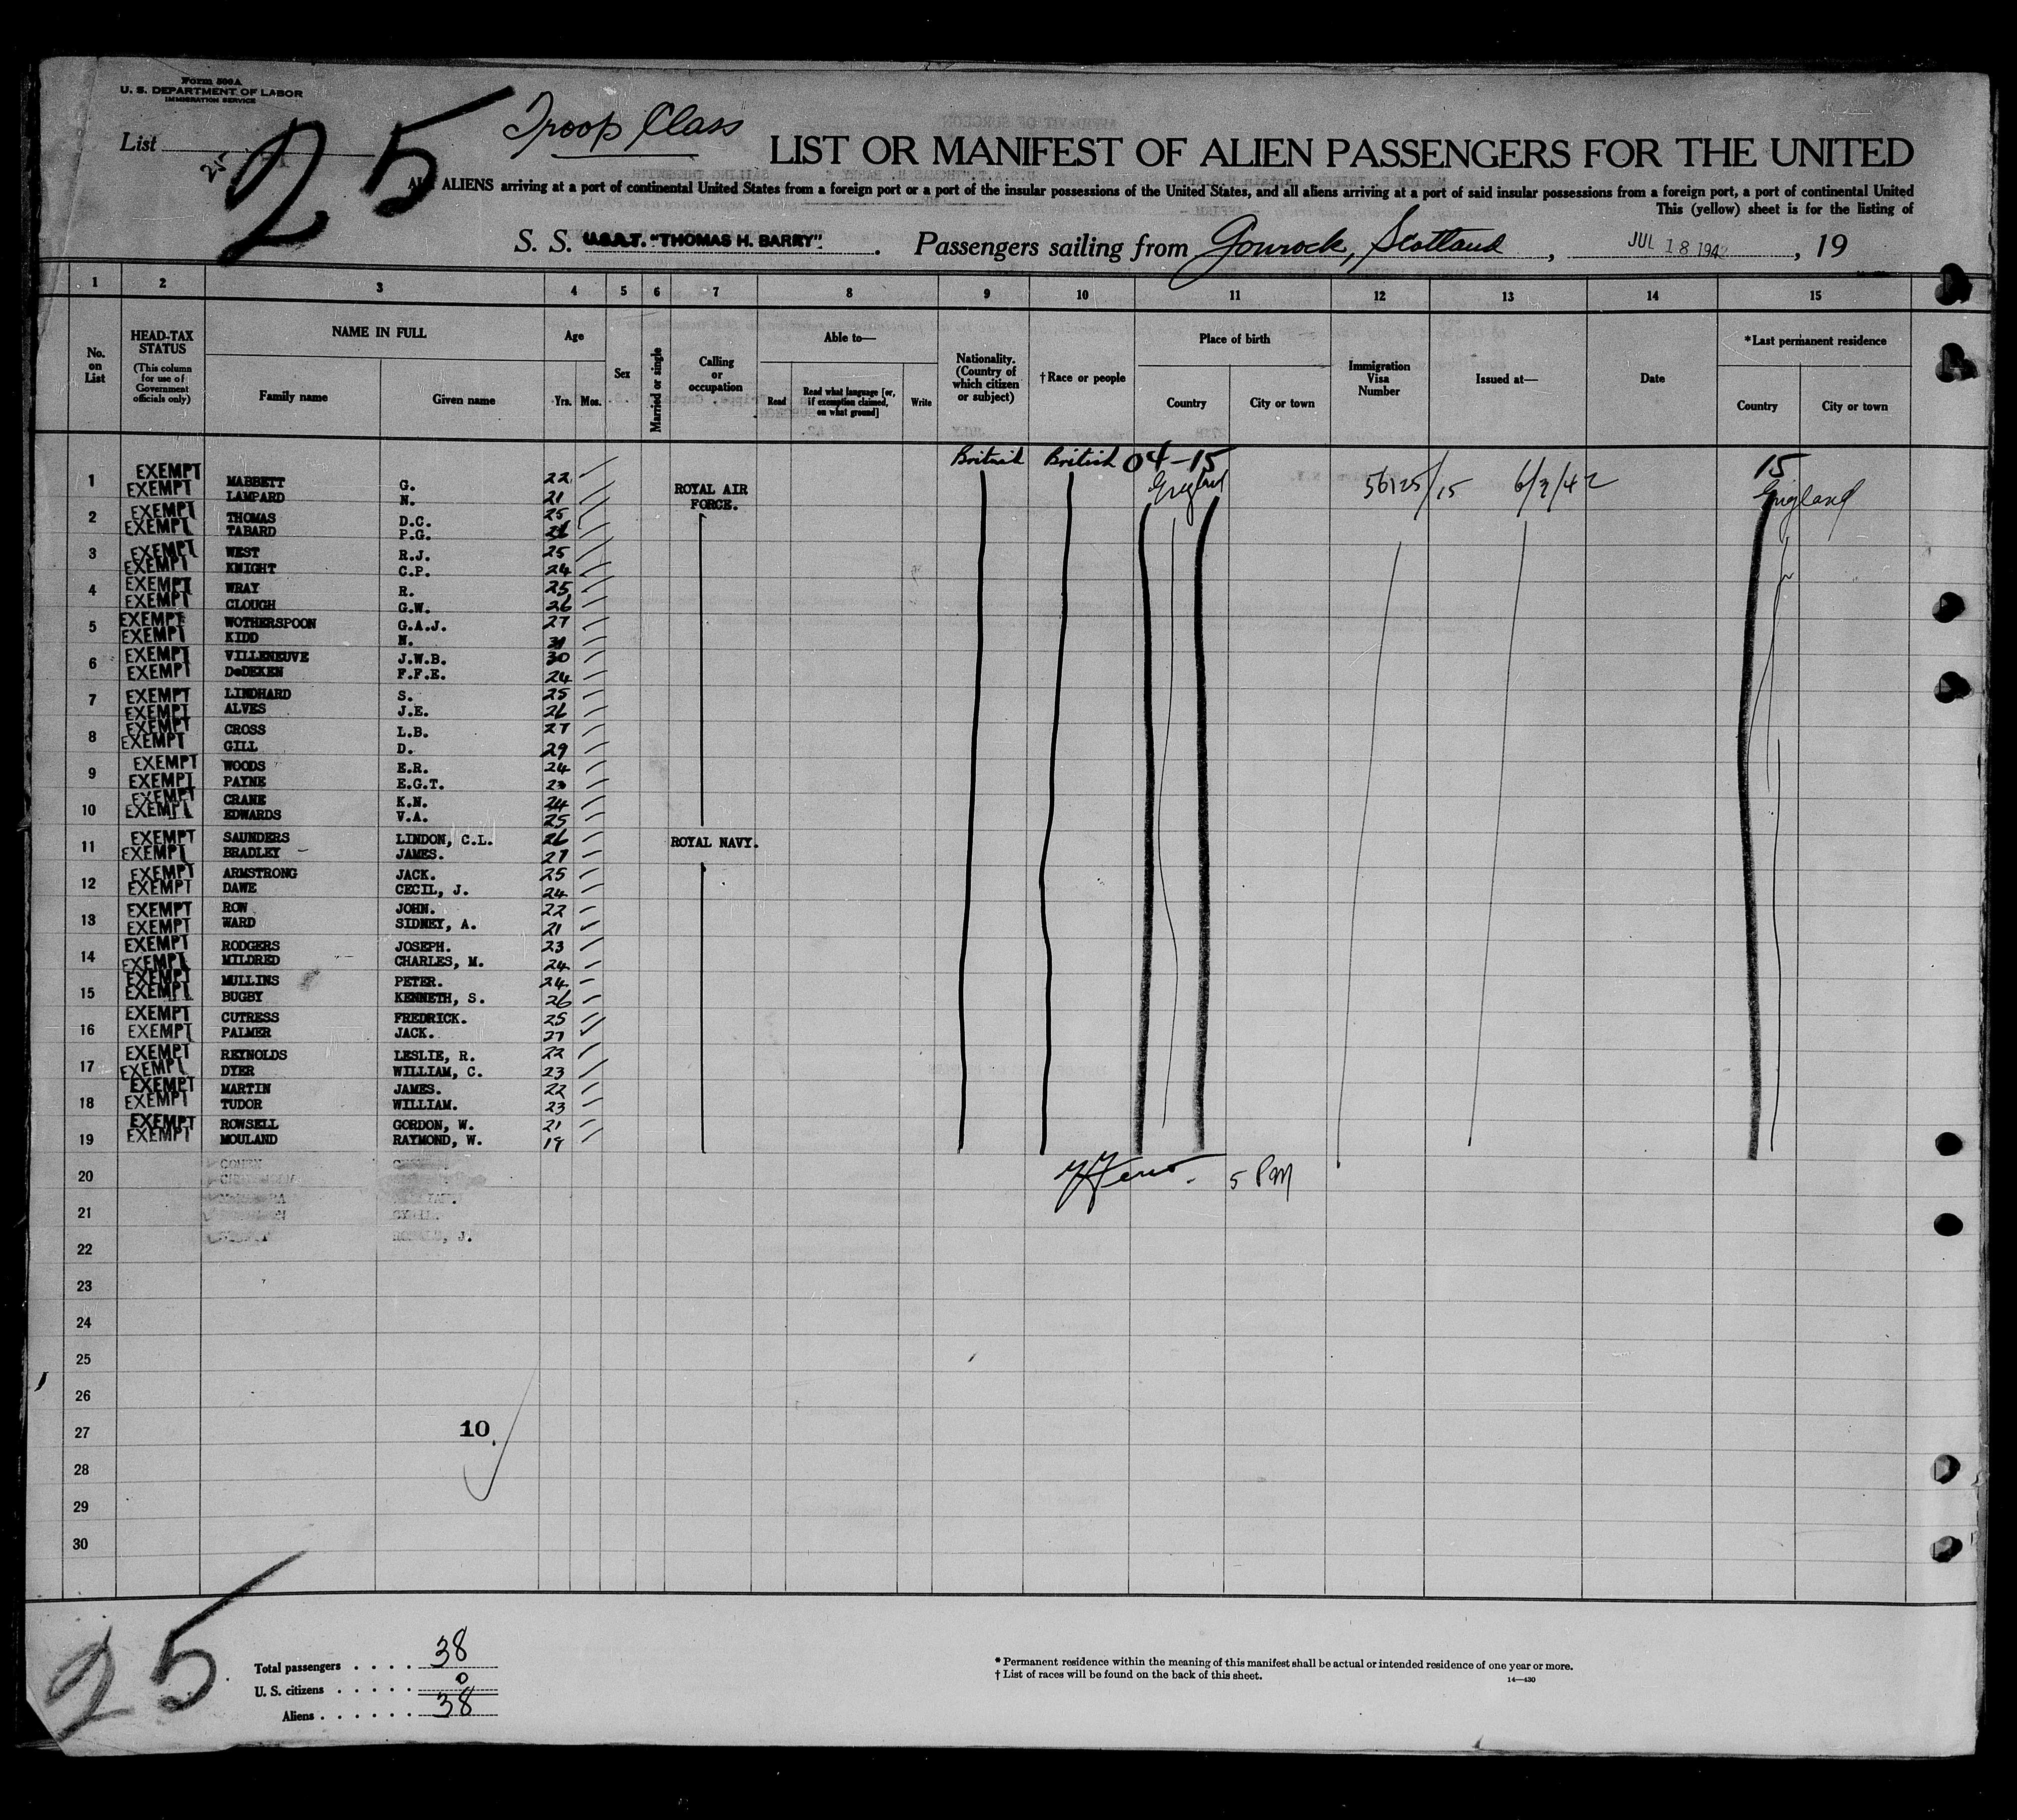 Form 500A
U. S. DEPARTMENT OF LABOR
IMMIGRATION SERVICE
List 25
25
Troop Class
LIST OR MANIFEST OF ALIEN PASSENGERS FOR THE UNITED
ALL ALIENS arriving at a port of continental United States from a foreign port or a port of the insular possessions of the United States, and all aliens arriving at a port of said insular possessions from a foreign port, a port of continental United
This (yellow) sheet is for the listing of
S. S. U.S.A.T. "THOMAS H. BARRY". Passengers sailing from Gourock, Scotland, JUL 18 1942, 19
1 2 3 4 5 6 7 8 9 10 11 12 13 14 15
No. on List
HEAD-TAX STATUS
(This column for use of Government officials only)
NAME IN FULL
Family name Given name
Age
Yrs. Mos.
Sex
Married or single
Calling or occupation
Able to—
Read Read what language [or, if exemption claimed, on what ground] Write
Nationality. (Country of which citizen or subject)
†Race or people
Place of birth
Country City or town
Immigration Visa Number
Issued at—
Date
*Last permanent residence
Country City or town
British British 04-15 15
1 EXEMPT MABBETT G. 22 ROYAL AIR FORCE. England 56125/15 6/2/42 England
EXEMPT LAMPARD N. 21
2 EXEMPT THOMAS D.C. 25
EXEMPT TABARD P.G.
3 EXEMPT WEST R.J. 25
EXEMPT KNIGHT C.P. 24
4 EXEMPT WRAY R. 25
EXEMPT CLOUGH G.W. 26
5 EXEMPT WOTHERSPOON G.A.J. 27
EXEMPT KIDD N. 31
6 EXEMPT VILLENEUVE J.W.B. 30
EXEMPT DeDEKEN F.F.E. 24
7 EXEMPT LINDHARD S. 25
EXEMPT ALVES J.E. 26
8 EXEMPT CROSS L.B. 27
EXEMPT GILL D. 29
9 EXEMPT WOODS E.R. 24
EXEMPT PAYNE E.G.T. 23
10 EXEMPT CRANE K.N. 24
EXEMPT EDWARDS V.A. 25
11 EXEMPT SAUNDERS LINDON, C.L. 26 ROYAL NAVY.
EXEMPT BRADLEY JAMES. 27
12 EXEMPT ARMSTRONG JACK. 25
EXEMPT DAWE CECIL, J. 24
13 EXEMPT ROW JOHN. 22
EXEMPT WARD SIDNEY, A. 21
14 EXEMPT RODGERS JOSEPH. 23
EXEMPT MILDRED CHARLES, M. 24
15 EXEMPT MULLINS PETER. 24
EXEMPT BUGBY KENNETH, S. 26
16 EXEMPT CUTRESS FREDRICK. 25
EXEMPT PALMER JACK. 27
17 EXEMPT REYNOLDS LESLIE, R. 22
EXEMPT DYER WILLIAM, C. 23
18 EXEMPT MARTIN JAMES. 22
EXEMPT TUDOR WILLIAM. 23
19 EXEMPT ROWSELL GORDON, W. 21
EXEMPT MOULAND RAYMOND, W. 19
20 5 PM
21
22
23
24
25
26
27 10
28
29
30
25
Total passengers . . . . 38
U. S. citizens . . . . . 0
Aliens . . . . . . 38
* Permanent residence within the meaning of this manifest shall be actual or intended residence of one year or more.
† List of races will be found on the back of this sheet.
14—430